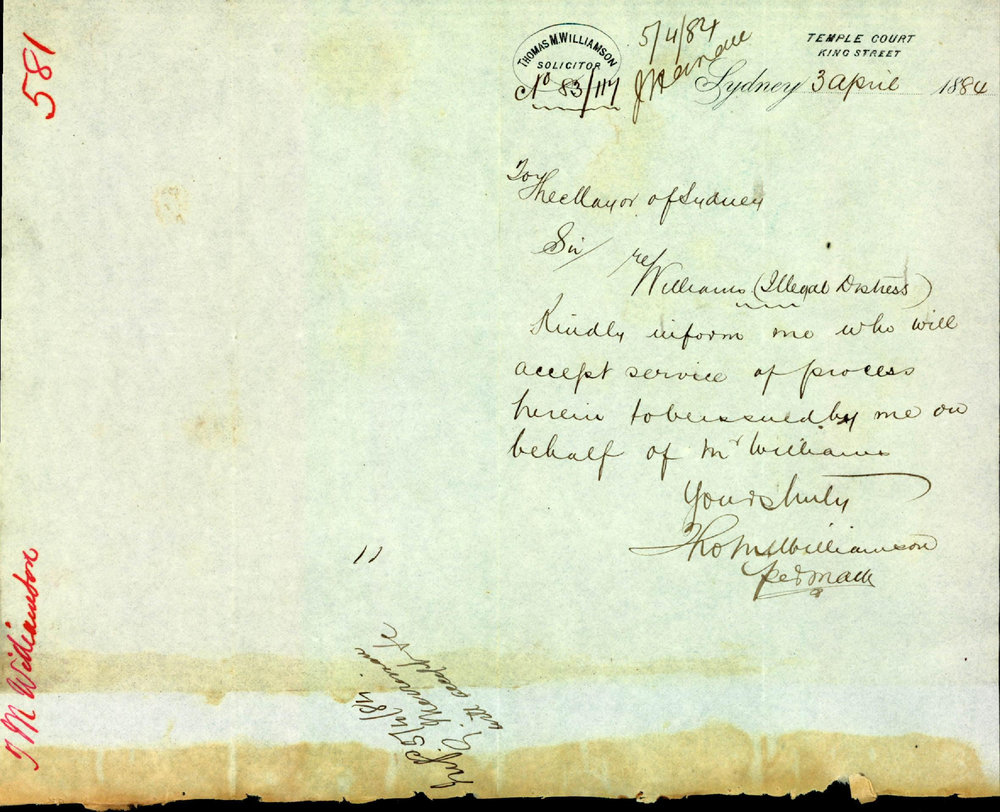 581
T M Williamson
THOMAS M. WILLIAMSON
SOLICITOR
No 83/117
5/4/84
TEMPLE COURT
KING STREET
Sydney 3 April 1884
To
The Mayor of Sydney
Sir/
re/
Williams (Illegal Distress)
Kindly inform me who will
accept service of process
herein to be issued by me on
behalf of Mr Williams
Yours truly
Tho M Williamson
11
5/4/84
will accept &c